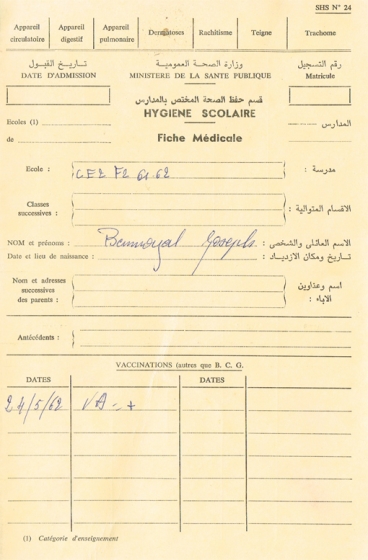 SHS N° 24
Appareil circulatoire
Appareil digestif
Appareil pulmonaire
Dermatoses
Rachitisme
Teigne
Trachome
تاريخ القبول
وزارة الصحة العمومية
رقم التسجيل
DATE D'ADMISSION
MINISTERE DE LA SANTE PUBLIQUE
Matricule
قسم حفظ الصحة المختص بالمدارس
HYGIENE SCOLAIRE
Ecoles (1)
المدارس
de
Fiche Médicale
Ecole :
F2 61-62
مدرسة :
Classes successives :
الاقسام المتوالية :
NOM et prénoms :
Joseph
الاسم العائلى والشخصى :
Date et lieu de naissance :
تاريخ ومكان الازدياد :
Nom et adresses successives des parents :
اسم وعناوين الاباء :
Antécédents :
VACCINATIONS (autres que B. C. G.
DATES
DATES
24/5/62 VA - +
(1) Catégorie d'enseignement